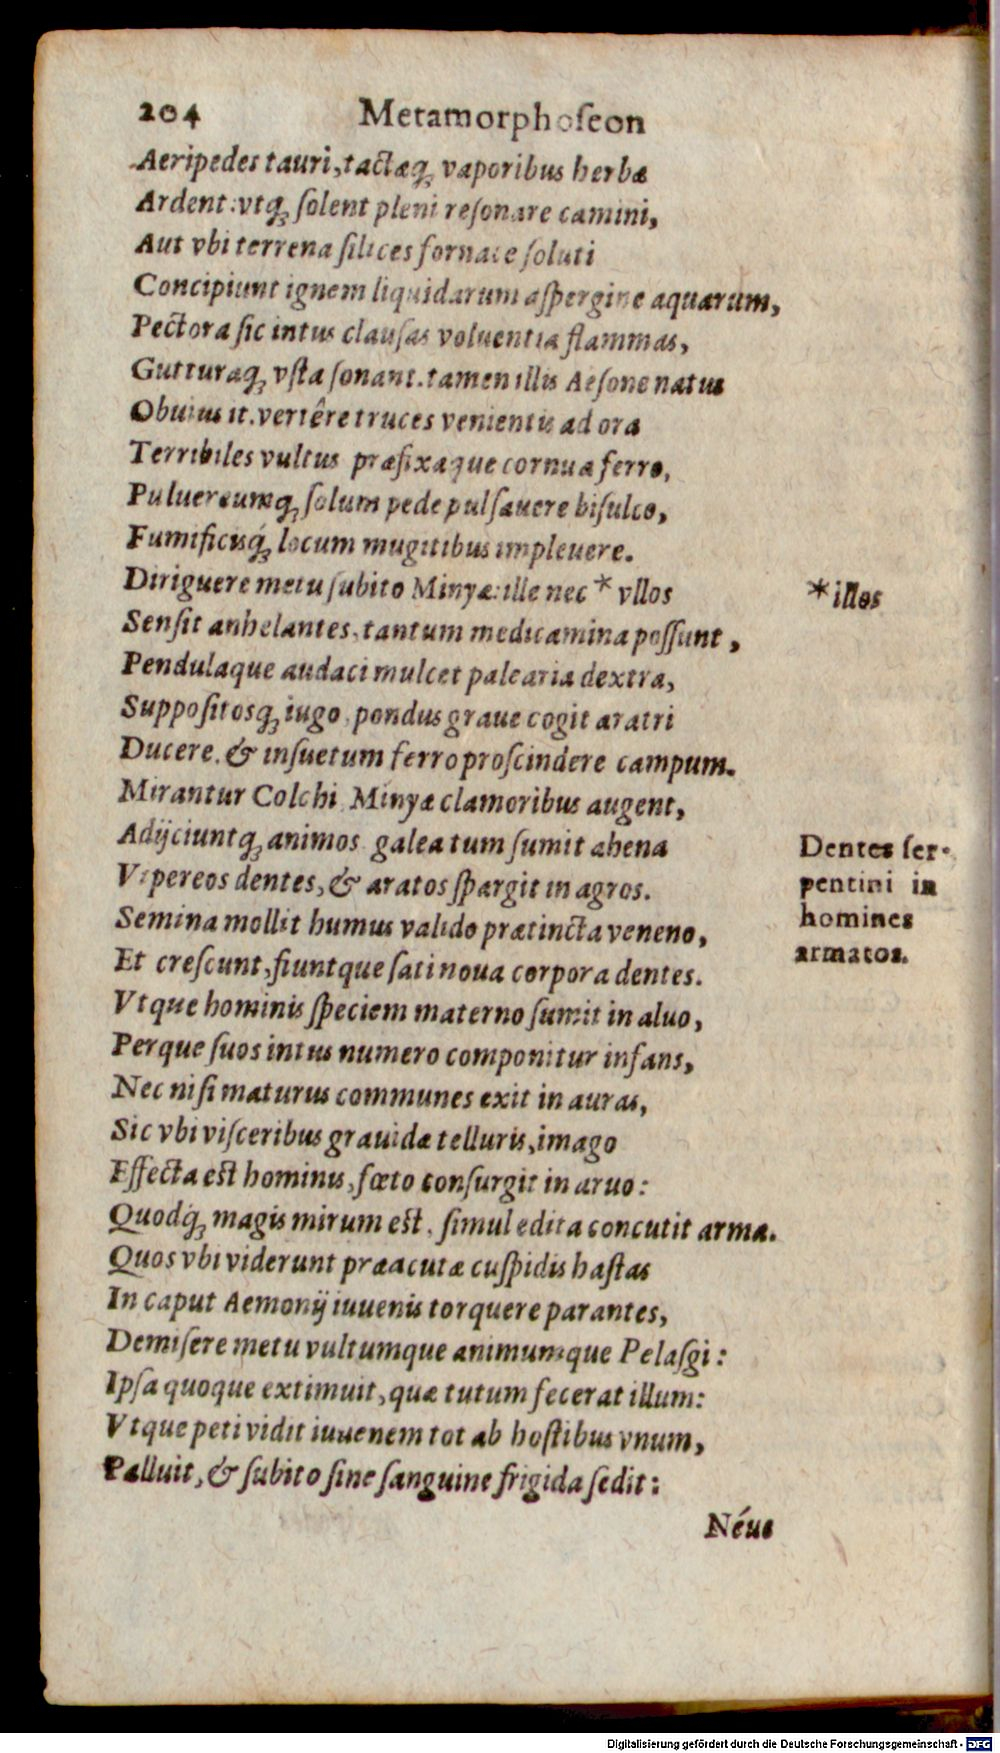 204 Metamorphoſeon
Aeripedes tauri, tactæq́ꝫ vaporibus herbæ
Ardent: vtq́ꝫ ſolent pleni reſonare camini,
Aut vbi terrena ſilices fornace ſoluti
Concipiunt ignem liquidarum aſpergine aquarum,
Pectora ſic intus clauſas voluentia flammas,
Gutturaq́ꝫ vſta ſonant. tamen illis Aeſone natus
Obuius it. vertêre truces venientis ad ora
Terribiles vultus præfixaque cornua ferro,
Puluereumq́ꝫ ſolum pede pulſauere biſulco,
Fumificisq́ꝫ locum mugitibus impleuere.
Diriguere metu ſubito Minyæ: ille nec * vllos
* illos
Senſit anhelantes, tantum medicamina poſſunt,
Pendulaque audaci mulcet palearia dextra,
Suppoſitosq́ꝫ iugo, pondus graue cogit aratri
Ducere, & inſuetum ferro proſcindere campum.
Mirantur Colchi, Minyæ clamoribus augent,
Adijciuntq́ꝫ animos. galea tum ſumit ahena
Vipereos dentes, & aratos ſpargit in agros.
Dentes ſer-
pentini in
homines
armatos.
Semina mollit humus valido prætincta veneno,
Et creſcunt, fiuntque ſati noua corpora dentes.
Vtque hominis ſpeciem materno ſumit in aluo,
Perque ſuos intus numero componitur infans,
Nec niſi maturus communes exit in auras,
Sic vbi viſceribus grauidæ telluris, imago
Effecta eſt hominis, fœto conſurgit in aruo:
Quodq́ꝫ magis mirum eſt, ſimul edita concutit arma.
Quos vbi viderunt præacutæ cuſpidis haſtas
In caput Aemonij iuuenis torquere parantes,
Demiſere metu vultumque animumque Pelaſgi:
Ipſa quoque extimuit, quæ tutum fecerat illum:
Vtque peti vidit iuuenem tot ab hoſtibus vnum,
Palluit, & ſubito ſine ſanguine frigida ſedit:
Néue
Digitalisierung gefördert durch die Deutsche Forschungsgemeinschaft - DFG